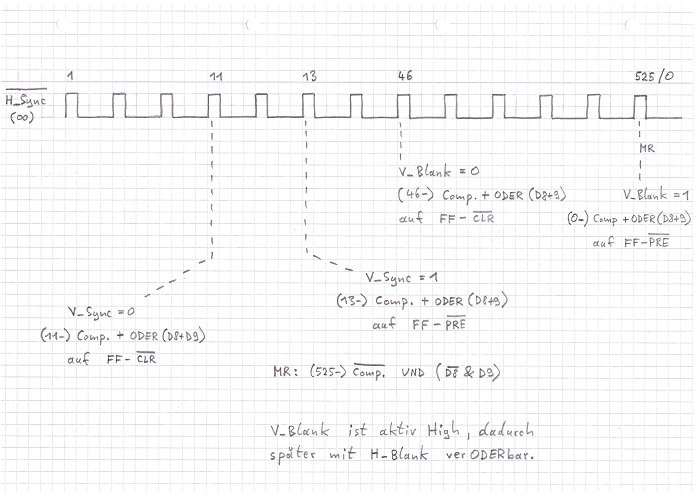 1 11 13 46 525/0
H_Sync
(∞)
MR
V_Blank = 0
(46-) Comp. + ODER (D8+9)
auf FF-CLR
V_Blank = 1
(0-) Comp + ODER (D8+9)
auf FF-PRE
V_Sync = 1
(13-) Comp. + ODER (D8+9)
auf FF-PRE
V_Sync = 0
(11-) Comp. + ODER (D8+D9)
auf FF-CLR
MR: (525-) Comp. UND (D8 & D9)
V_Blank ist aktiv High, dadurch
später mit H_Blank verODERbar.